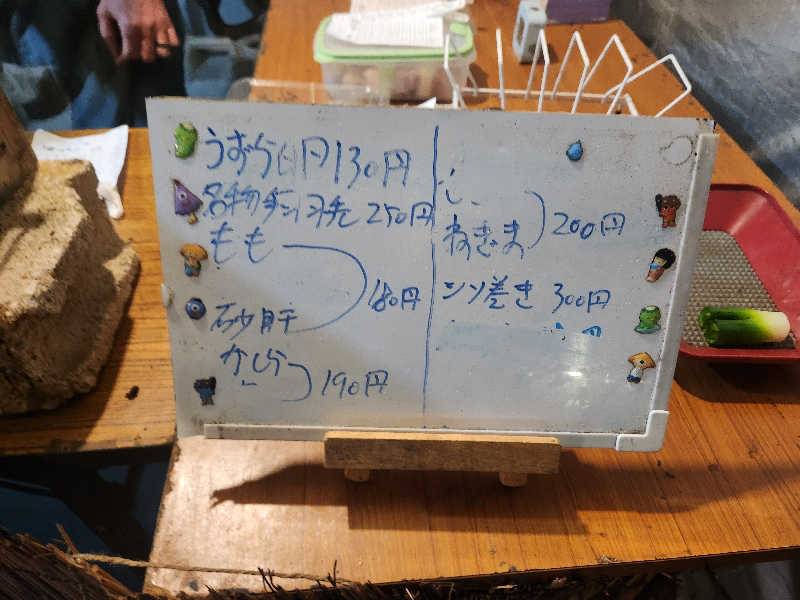 うずら 130円
名物 250円
もも
砂肝 180円
かしら 190円
ねぎま 200円
シソ巻き 300円
円